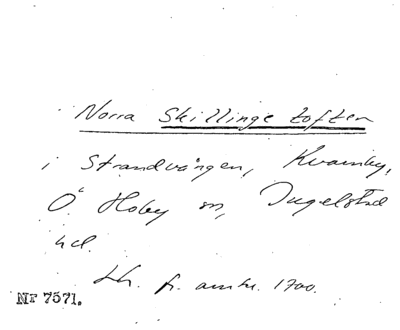 Norra Skillinge toften
i Strandvången, Kvarnby,
Ö. Hoby sn, Ingelstad
hd.
fr. omkr. 1700.
Nr 7571.